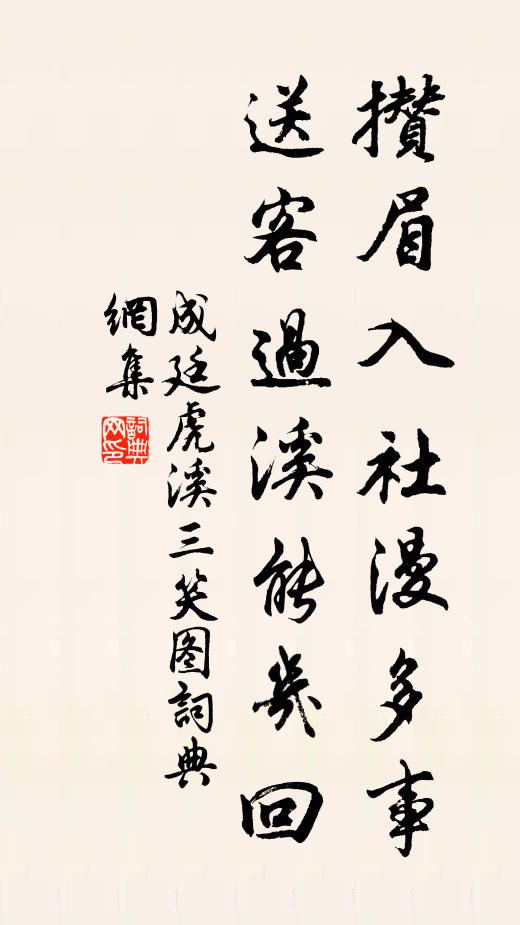 攢眉入社漫多事
送客過溪能幾回
成廷虎溪三笑图詞典
網集
詞典
网印